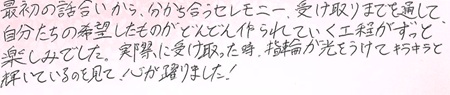 最初の話合いから、分かち合うセレモニー、受け取りまでを通して、
自分たちの希望したものがどんどん作られていく工程がずっと、
楽しみでした。実際に受け取った時、指輪が光をうけてキラキラと
輝いているのを見て、心が躍りました！